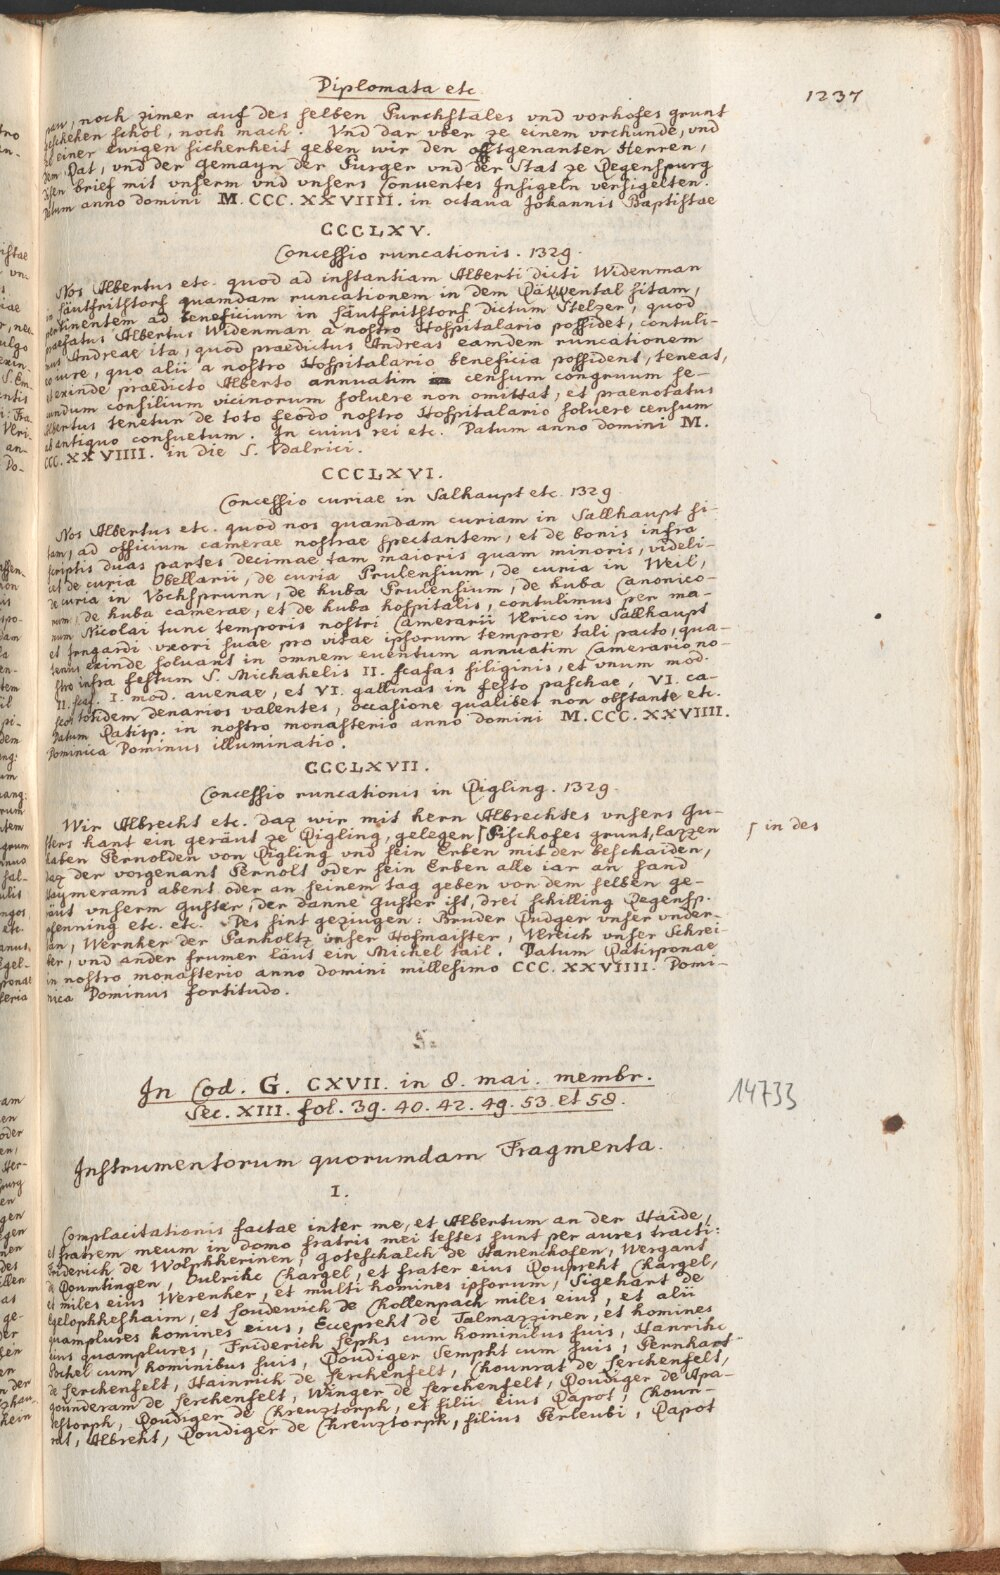 Diplomata etc.
1237
noch zimer auf des selben Purchstales vnd vorhofes grunt
geschehen schol, noch mach. Vnd dar vber ze einem vrchunde, vnd
ze einer ewigen sicherheit geben wir den oftgenanten Herren,
dem Rat, vnd der Gemayn der Purger vnd der Stat ze Regenspurg
disen brief mit vnserm vnd vnsers Conuentes Insigeln versigelten.
Datum anno domini M. CCC. XXVIIII. in octaua Johannis Baptistae
CCCLXV.
Concessio runcationis. 1329.
Nos Albertus etc. quod ad instantiam Alberti dicti Widenman
in Säutfrithstorf quamdam runcationem in dem sitam,
pertinentem ad beneficium in Säutfrithstorf dictum Stelzer, quod
praefatus Albertus Widenman a nostro Hospitalario possidet, contuli-
mus Andreae ita, quod praedictus Andreas eamdem runcationem
eo iure, quo alii a nostro Hospitalario beneficia possident, teneat,
et exinde praedicto Alberto annuatim censum congruum se-
cundum consilium vicinorum soluere non omittat, et praenotatus
Albertus tenetur de toto feodo nostro Hospitalario soluere censum
ab antiquo consuetum. In cuius rei etc. Datum anno domini M.
CCC. XXVIIII. in die S. Vdalrici.
CCCLXVI.
Concessio curiae in Salhaupt etc. 1329.
Nos Albertus etc. quod nos quamdam curiam in Sallhaupt si-
tam, ad officium camerae nostrae spectantem, et de bonis infra
scriptis duas partes decimae tam maioris quam minoris, videli-
cet de curia Obellarii, de curia Prulensium, de curia in Weil,
de curia in Vochsprunn, de huba Prulensium, de huba Canonico-
rum, de huba camerae, et de huba hospitalis, contulimus per ma-
num Nicolai tunc temporis nostri Camerarii Vlrico in Sallhaupt
et Irngardi vxori suae pro vitae ipsorum tempore tali pacto, qua-
tenus exinde soluant in omnem euentum annuatim Camerario no-
stro infra festum S. Michahelis II. scafas siliginis, et vnum mod.
II. scaf. I. mod. auenae, et VI. gallinas in festo paschae, VI. ca-
seos totidem denarios valentes, occasione qualibet non obstante etc.
Datum Ratisp. in nostro monasterio anno domini M. CCC. XXVIIII.
Dominica Dominus illuminatio.
CCCLXVII.
Concessio runcationis in Rigling. 1329.
Wir Albrecht etc. daz wir mit hern Albrechtes vnsers Gu-
sters hant ein geräut ze Rigling, gelegen ⌈ Pischofes grunt, lazzen
⌈ in des
haben Pernolden von Rigling vnd sein Erben mit der beschaiden,
daz der vorgenant Pernolt oder sein Erben alle iar an sand
Haymerams abent oder an seinem tag geben von dem selben ge-
räut vnserm Guster, der danne Guster ist, drei schilling Regensp.
pfenning etc. etc. Des sint geziugen: Bruder Rudger vnser vnder-
tan, Wernher der Panholtz vnser Hofmaister, Vlreich vnser Schrei-
ber, vnd ander frumer läut ein Michel tail. Datum Ratisponae
in nostro monasterio anno domini millesimo CCC. XXVIIII. Domi-
nica Dominus fortitudo.
In Cod. G. CXVII. in 8. mai. membr.
Sec. XIII. fol. 39. 40. 42. 49. 53. et 58.
14733
Instrumentorum quorumdam Fragmenta.
I.
Complacitationis factae inter me, et Albertum an der Haide,
et fratrem meum in domo fratris mei testes sunt per aures tracti:
Friderich de Wolphherinen, Goteschalch de Hanenchofen, Wergant
de Roumtingen, Oulrihc Chargel, et frater eius Roupreht Chargel,
et miles eius Werenher, et multi homines ipsorum, Sigehart de
Egelophheshaim, et Loudewich de Chollenpach miles eius, et alii
quamplures homines eius, Eccepreht de Talmazzinen, et homines
eius quamplures, Friderich Sephs cum hominibus suis, Hanrihc
Pochel cum hominibus suis, Roudiger Sempht cum suis, Pernhart
de Lerchenfelt, Hainrich de Lerchenfelt, Chounrat de Lerchenfelt,
Gounderam de Lerchenfelt, Winger de Lerchenfelt, Roudiger de Apa-
testorph, Roudiger de Chreuztorph, et filii eius Rapot, Choun-
rat, Albreht, Roudiger de Chreuztorph, filius Perleubi, Rapot